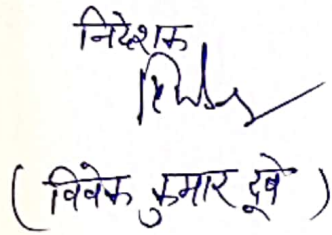 निदेशक
(विवेक कुमार दूबे)